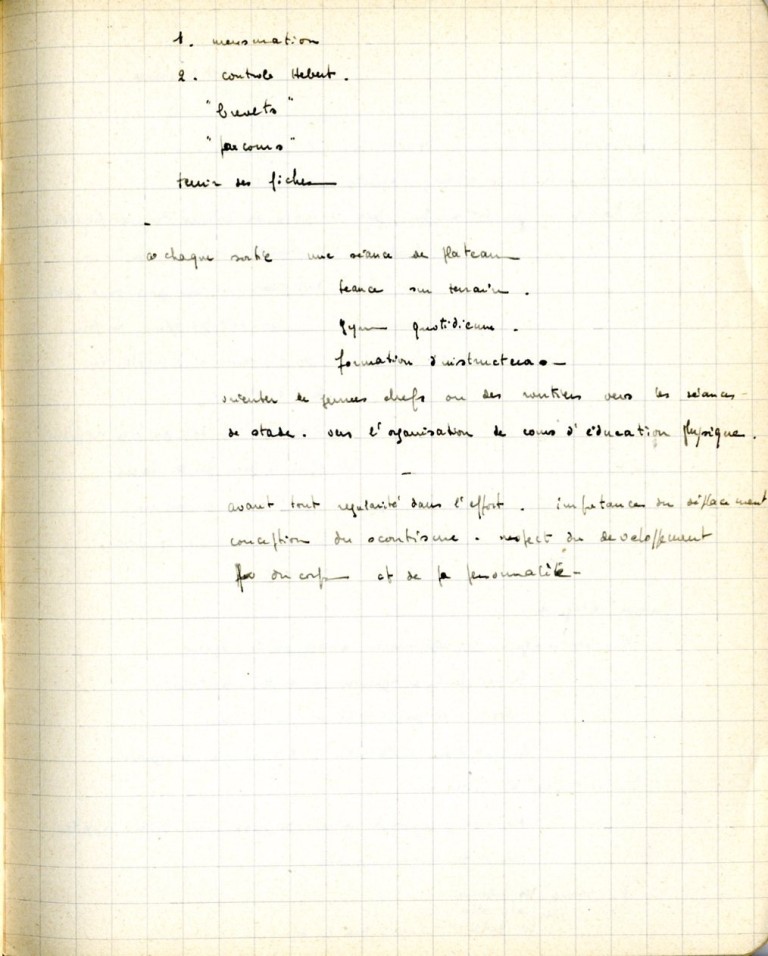 1. mensuration
2. controle Hebert.
"brevets"
"parcours"
tenir des fiches
-
a chaque sortie une séance de plateau
seance sur terrain.
gym quotidienne.
formation d'instructeurs -
orienter de jeunes chefs ou des routiers vers les séances
de stade. vers l'organisation de cours d'éducation physique.
-
avant tout regularité dans l'effort. importance du
conception du scoutisme. respect du developpement
du corps et de la personnalité -